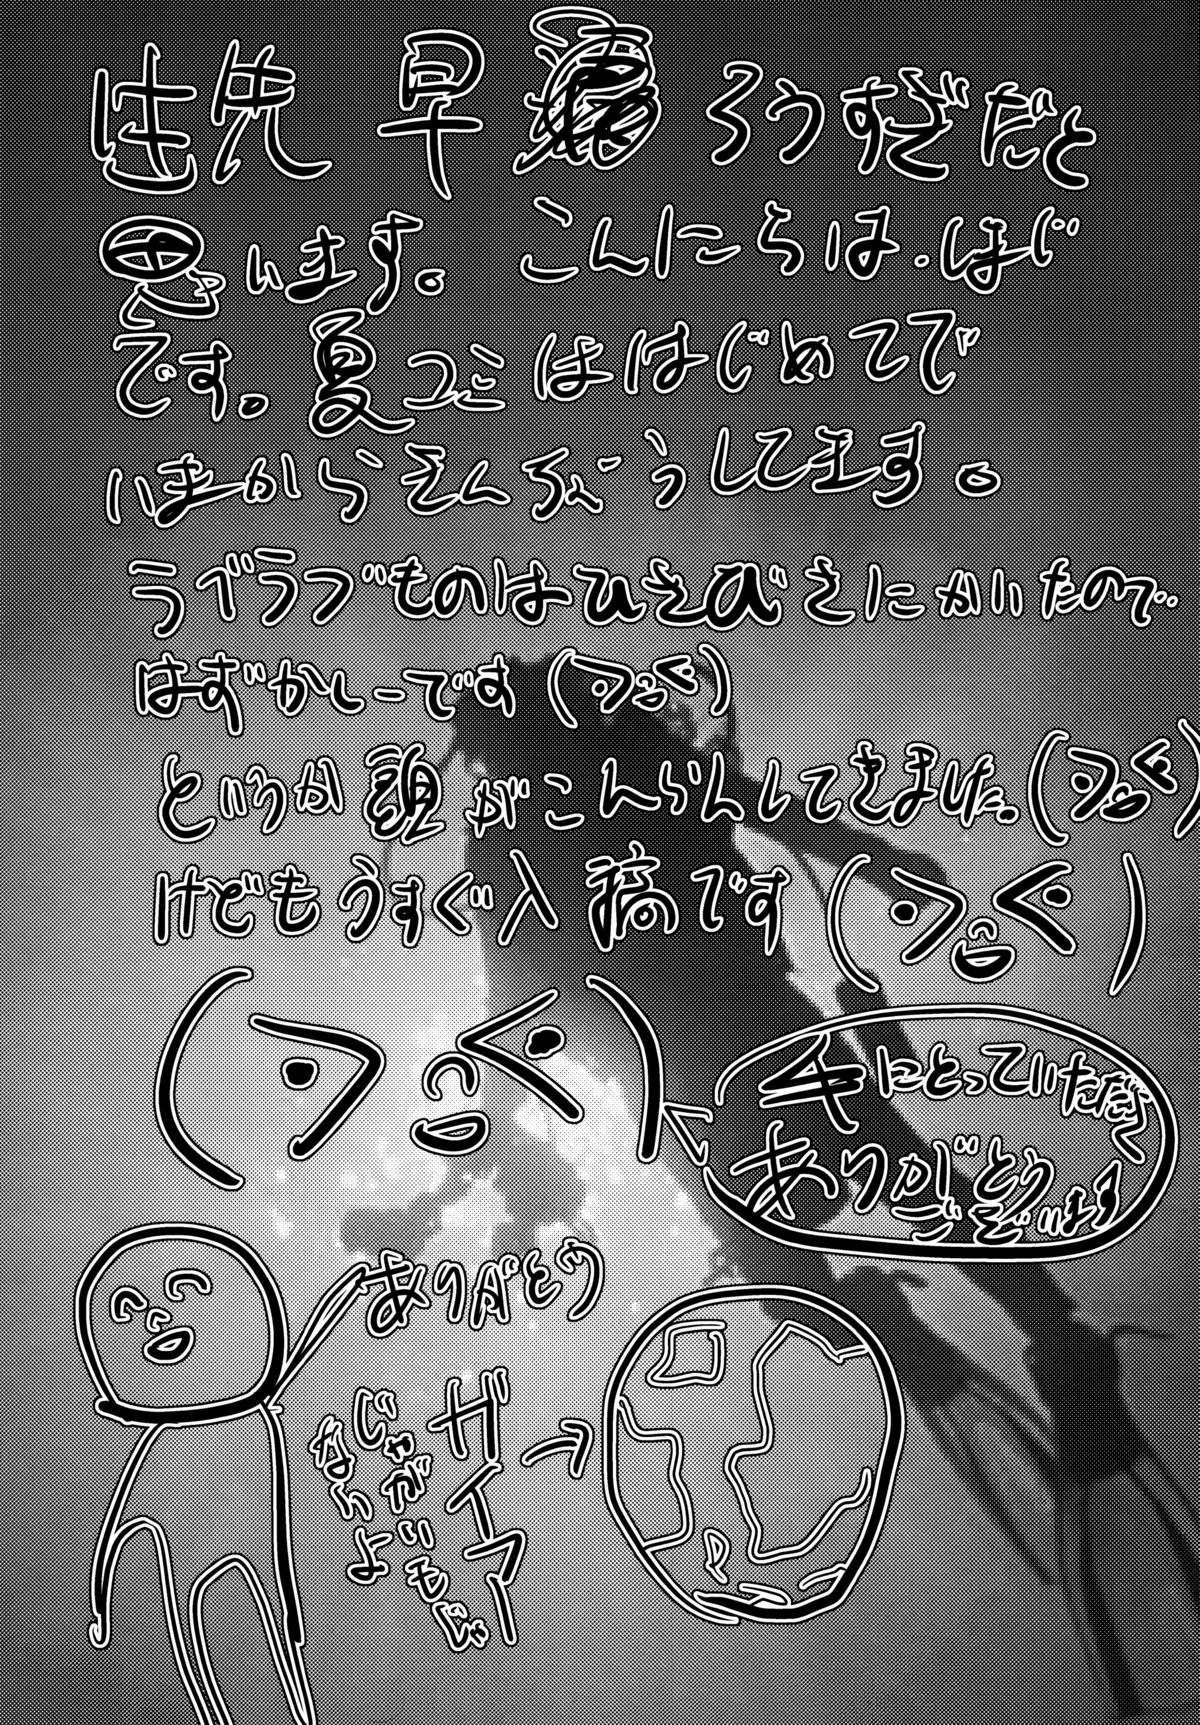 先 早 ろうすぎだと
思います。 こんにちは、はじ
です。夏コミははじめてで
いまからぞんぶうしてます。
ラブラブものはひさびさにかいたので
はずかしーです
というか頭がこんらんしてきました。
けどもうすぐ入稿です
手にとっていただき
ありがとう
ございます
ありがとう
ガイアー
じゃがいもじゃ
ないよ